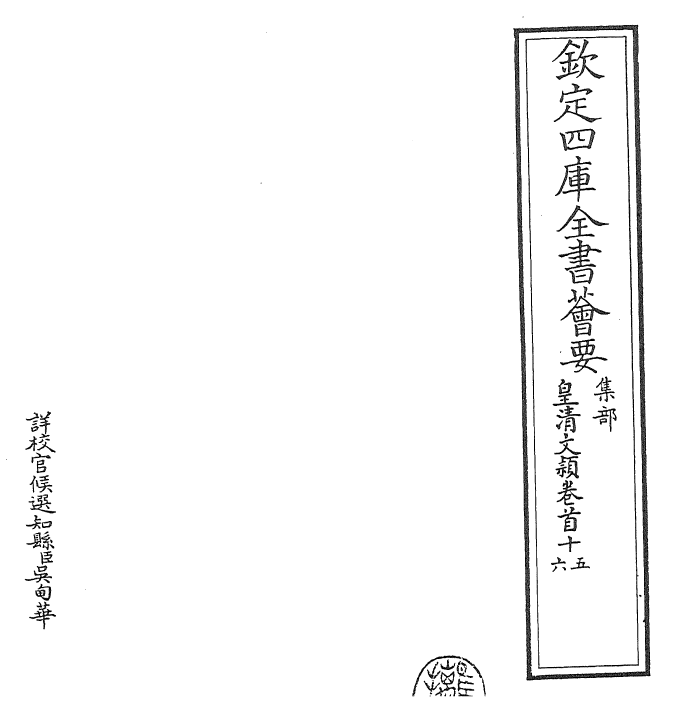 欽定四庫全書薈要
集部
皇清文穎卷首十五
六
詳校官候選知縣臣吳甸華